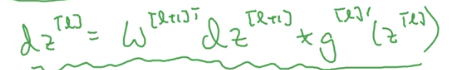 dz^[l] = W^[l+1]T dz^[l+1] * g^[l]'(z^[l])